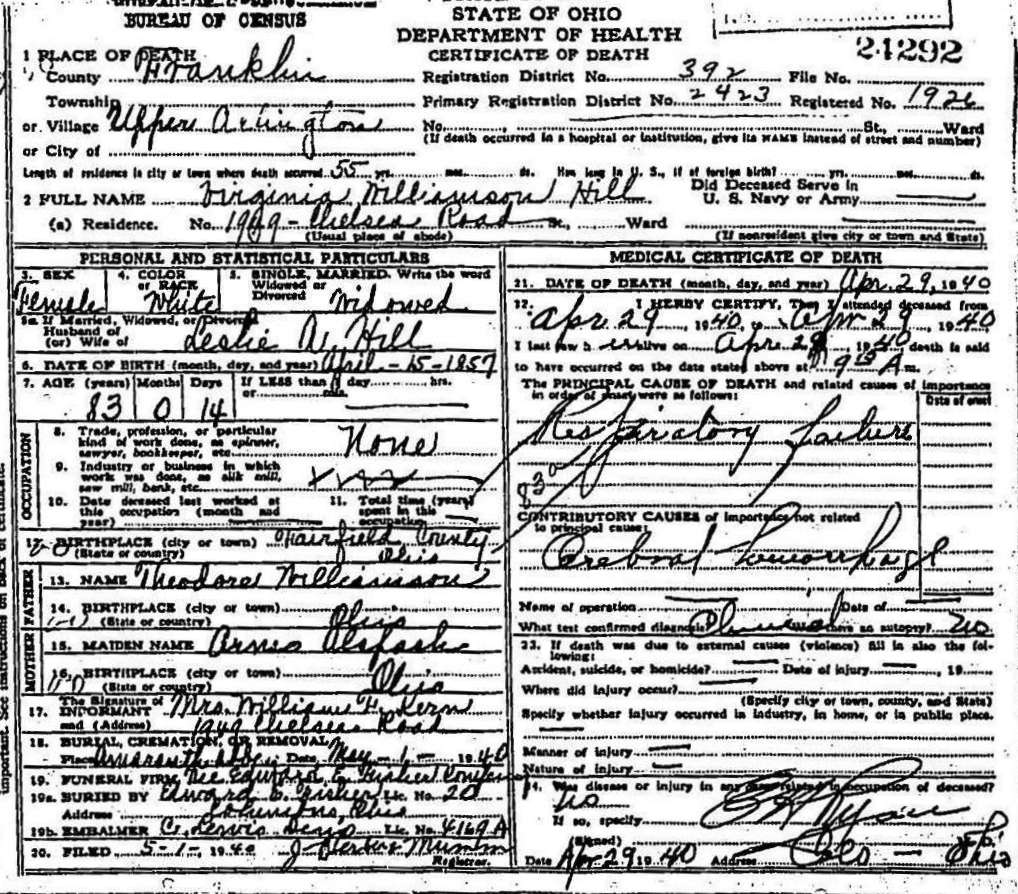 BUREAU OF CENSUS
STATE OF OHIO
DEPARTMENT OF HEALTH
CERTIFICATE OF DEATH
24292
1 PLACE OF DEATH
County Franklin
Registration District No. 392 File No.
Township
Primary Registration District No. 2423 Registered No. 1926
or Village Upper Arlington
No. St., Ward
(If death occurred in a hospital or institution, give its NAME instead of street and number)
or City of
Length of residence in city or town where death occurred 55 yrs. mos. ds. How long in U. S., if of foreign birth? yrs. mos. ds.
2 FULL NAME Virginia Williamson Hill
Did Deceased Serve in
U. S. Navy or Army
(a) Residence. No. 1949 - Chelsea Road St., Ward
(Usual place of abode) (If nonresident give city or town and State)
PERSONAL AND STATISTICAL PARTICULARS
3. SEX 4. COLOR or RACE 5. SINGLE, MARRIED. Write the word
Widowed or Divorced
Female White Widowed
5a. If Married, Widowed, or Divorced
Husband of
(or) Wife of Leslie A. Hill
6. DATE OF BIRTH (month, day, and year) April - 15 - 1857
7. AGE (years) Months Days If LESS than 1 day hrs.
or min.
83 0 14
OCCUPATION
8. Trade, profession, or particular
kind of work done, as spinner,
sawyer, bookkeeper, etc. None
9. Industry or business in which
work was done, as silk mill,
saw mill, bank, etc.
10. Date deceased last worked at
this occupation (month and
year)
11. Total time (years)
spent in this
occupation
12. BIRTHPLACE (city or town) Fairfield County
(State or country) Ohio
FATHER
13. NAME Theodore Williamson
14. BIRTHPLACE (city or town)
(State or country) Ohio
MOTHER
15. MAIDEN NAME Alspach
16. BIRTHPLACE (city or town)
(State or country) Ohio
17. The Signature of
INFORMANT Mrs. William H. Kern
and (Address) 1949 Chelsea Road
18. BURIAL, CREMATION, OR REMOVAL
Place Date May - 1 - 1940
19. FUNERAL FIRM The Edward E. Fisher Company
19a. BURIED BY Edward E. Fisher Lic. No. 20
Address Columbus, Ohio
19b. EMBALMER C. Lewis Lic. No. 4169 A
20. FILED 5-1-, 1940 J
Registrar.
MEDICAL CERTIFICATE OF DEATH
21. DATE OF DEATH (month, day, and year) Apr. 29, 1940
22. I HEREBY CERTIFY, That I attended deceased from
Apr 29, 1940, to Apr 29, 1940
I last saw her alive on Apr. 29, 1940 death is said
to have occurred on the date stated above at 9 15 A m.
The PRINCIPAL CAUSE OF DEATH and related causes of importance
in order of onset were as follows:
Date of onset
Respiratory failure
83a
CONTRIBUTORY CAUSES of importance not related
to principal cause:
Cerebral hemorrhage
Name of operation Date of
What test confirmed diagnosis? Clinical Was there an autopsy? no
23. If death was due to external causes (violence) fill in also the following:
Accident, suicide, or homicide? Date of injury , 19
Where did injury occur?
(Specify city or town, county, and State)
Specify whether injury occurred in industry, in home, or in public place.
Manner of injury
Nature of injury
24. Was disease or injury in any way related to occupation of deceased?
no
If so, specify
(Signed)
Date Apr 29 1940 Address Colo - Ohio
important. See instructions on back of certificate.